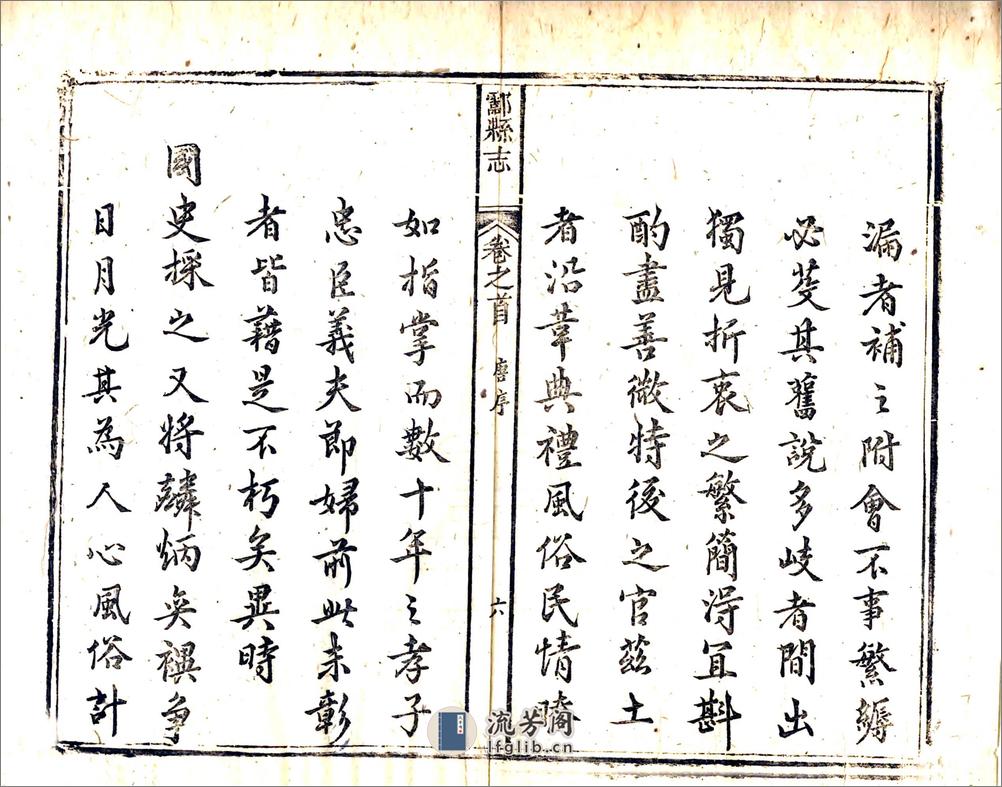 漏者補之附會不事繁縟
必芟其舊說多岐者間出
獨見折衷之繁簡得宜斟
酌盡善微特後之官茲土
者沿革典禮風俗民情瞭
鄠縣志
卷之首
唐序
六
如指掌而數十年之孝子
忠臣義夫節婦前此未彰
者皆藉是不朽矣異時
國史採之又將麟炳矣禩爭
日月光其為人心風俗計
流芳閣
lfglib.cn